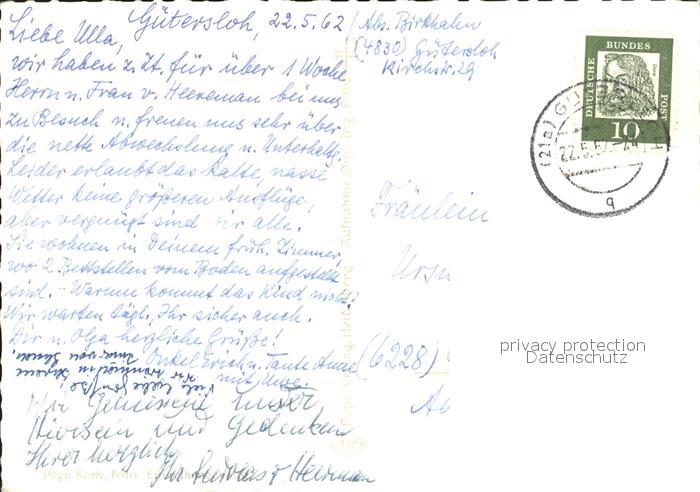 Gütersloh, 22.5.62
Liebe Ulla,
wir haben z. Zt. für über 1 Woche
Herrn u. Frau v. Heereman bei uns
zu Besuch u. freuen uns sehr über
die nette Abwechslung u. Unterhaltg.
Leider erlaubt das kalte, nasse
Wetter keine größeren Ausflüge,
aber vergnügt sind wir alle.
Sie wohnen in Deinem früh. Zimmer,
wo 2 Bettstellen vom Boden aufgestellt
sind. - Warum kommt das Kind nicht?
Wir warten tägl., Ihr sicher auch.
Dir u. Olga herzliche Grüße!
Onkel Erich u. Tante Anne
mit Uwe.
Viele liebe Grüße,
Wir genießen unser
Hiersein und Gedenken
Ihrer herzlich
Ihr v. Heereman
Abs. Birkhahn
(4830) Gütersloh
Kirchstr. 29
DEUTSCHE
BUNDES
POST
10
(21a) GÜ
22.5.62-24
q
Fräulein
Ursu
(6228)
privacy protection
Datenschutz
Popp Karte, Foto